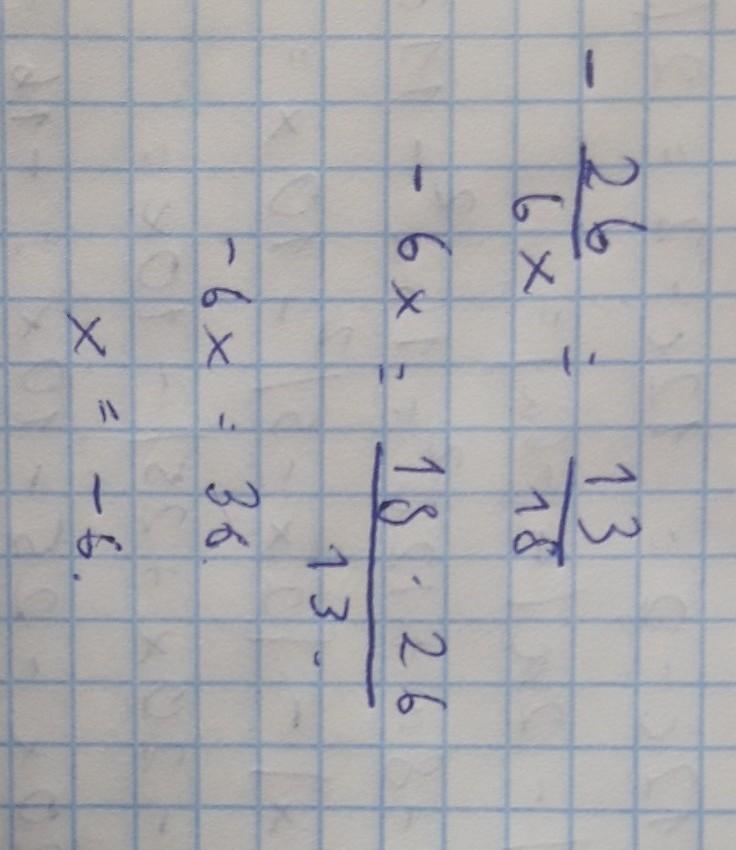 - 26/6x = 13/18
- 6x = 18 · 26/13
- 6x = 36.
x = -6.